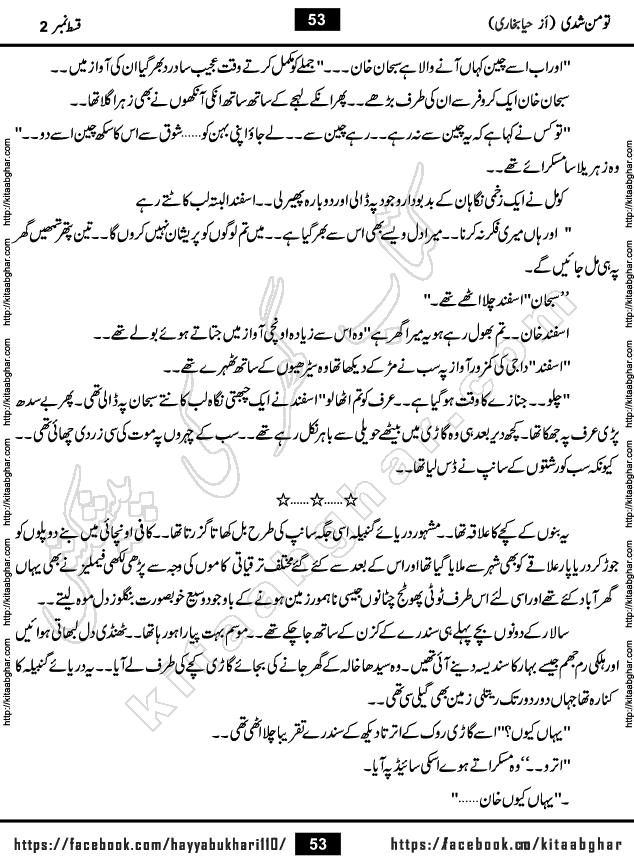 تو من شدی (از حیا بخاری)
53
قسط نمبر 2
"اور اب اسے چین کہاں آنے والا ہے سبحان خان ۔۔۔" جملے کو مکمل کرتے وقت عجیب سا درد بھر گیا ان کی آواز میں ۔۔
سبحان خان ایک کروفر سے ان کی طرف بڑھے ۔۔ پھر انکے لہجے کے ساتھ ساتھ انکی آنکھوں نے بھی زہر اگلا تھا ۔۔
"تو کس نے کہا ہے کہ یہ چین سے نہ رہے ۔۔ رہے چین سے ۔۔ لے جاؤ اپنی بہن کو...... شوق سے اس کا سکھ چین اسے دو ۔۔"
وہ زہریلا سا مسکرائے تھے ۔۔
کومل نے ایک زخمی نگاہ ان کے بدبودار وجود پہ ڈالی اور دوبارہ پھیر لی ۔۔ اسفند البتہ لب کاٹتے رہے
" اور ہاں میری فکر نہ کرنا ۔۔ میرا دل ویسے بھی اس سے بھر گیا ہے ۔۔ میں تم لوگوں کو پریشان نہیں کروں گا ۔۔ تین پتھر تمھیں گھر
پہ ہی مل جائیں گے۔
’’سبحان" اسفند چلا اٹھے تھے ۔"
اسفند خان ۔۔ تم بھول رہے ہو یہ میرا گھر ہے" وہ اس سے زیادہ اونچی آواز میں جتاتے ہوئے بولے تھے ۔۔
"اسفند" داجی کی کمزور آواز پہ سب نے مڑ کے دیکھا تھا وہ سیڑھیوں کے ساتھ ٹھہرے تھے ۔۔
"چلو ۔۔ جنازے کا وقت ہو گیا ہے ۔۔ عرف کو تم اٹھا لو" اسفند نے ایک چبھتی نگاہ لب کاٹتے سبحان پہ ڈالی تھی ۔ پھر بے سدھ
پڑی عرف پہ جھکا تھا ۔ کچھ دیر بعد ہی وہ گاڑی میں بیٹھے حویلی سے باہر نکل رہے تھے ۔۔ سب کے چہروں پہ موت کی سی زردی چھائی تھی ۔۔
کیونکہ سب کو رشتوں کے سانپ نے ڈس لیا تھا ۔۔
☆......☆......☆
یہ بنوں کے کچے کا علاقہ تھا ۔۔ مشہور دریائے گنبیلہ اسی جگہ سانپ کی طرح بل کھاتا گزرتا تھا ۔۔ کافی اونچائی میں بنے دو پلوں کو
جوڑ کر دریا پار علاقے کو بھی شہر سے ملایا گیا تھا اور اس کے بعد سے کئے گئے مختلف ترقیاتی کاموں کی وجہ سے پڑھی لکھی فیملیز نے بھی یہاں
گھر آباد کئے تھے اور اسی لئے اس طرف ٹوٹی پھوٹی چٹانوں جیسی ناہموار زمین ہونے کے باوجود وسیع خوبصورت بنگلوز دل موہ لیتے ۔۔
سالار کے دونوں بچے پہلے ہی سندرے کے کزن کے ساتھ جا چکے تھے ۔۔ موسم بہت پیارا ہو رہا تھا ۔۔ ٹھنڈی دل لبھاتی ہوائیں
اور ہلکی رم جھم جیسے بہار کا سندیسہ دینے آئی تھیں ۔ وہ سیدھا خالہ کے گھر جانے کی بجائے گاڑی کچے کی طرف لے آیا ۔۔ یہ دریائے گنبیلہ کا
کنارہ تھا جہاں دور دور تک ریتلی زمین بھی گیلی سی تھی ۔۔
"یہاں کیوں؟" اسے گاڑی روک کے اترتا دیکھ کے سندرے تقریبا چلا اٹھی تھی ۔۔
"اترو ۔۔‘‘ وہ مسکراتے ہوے اسکی سائیڈ پہ آیا ۔
۔"یہاں کیوں خان ......"
https://facebook.com/hayyabukhari110/
53
https://facebook.com/kitaabghar
http://kitaabghar.com http://kitaabghar.com http://kitaabghar.com http://kitaabghar.com http://kitaabghar.com http://kitaabghar.com
http://kitaabghar.com http://kitaabghar.com http://kitaabghar.com http://kitaabghar.com http://kitaabghar.com http://kitaabghar.com
کتاب گھر کی پیشکش
kitaabghar.com